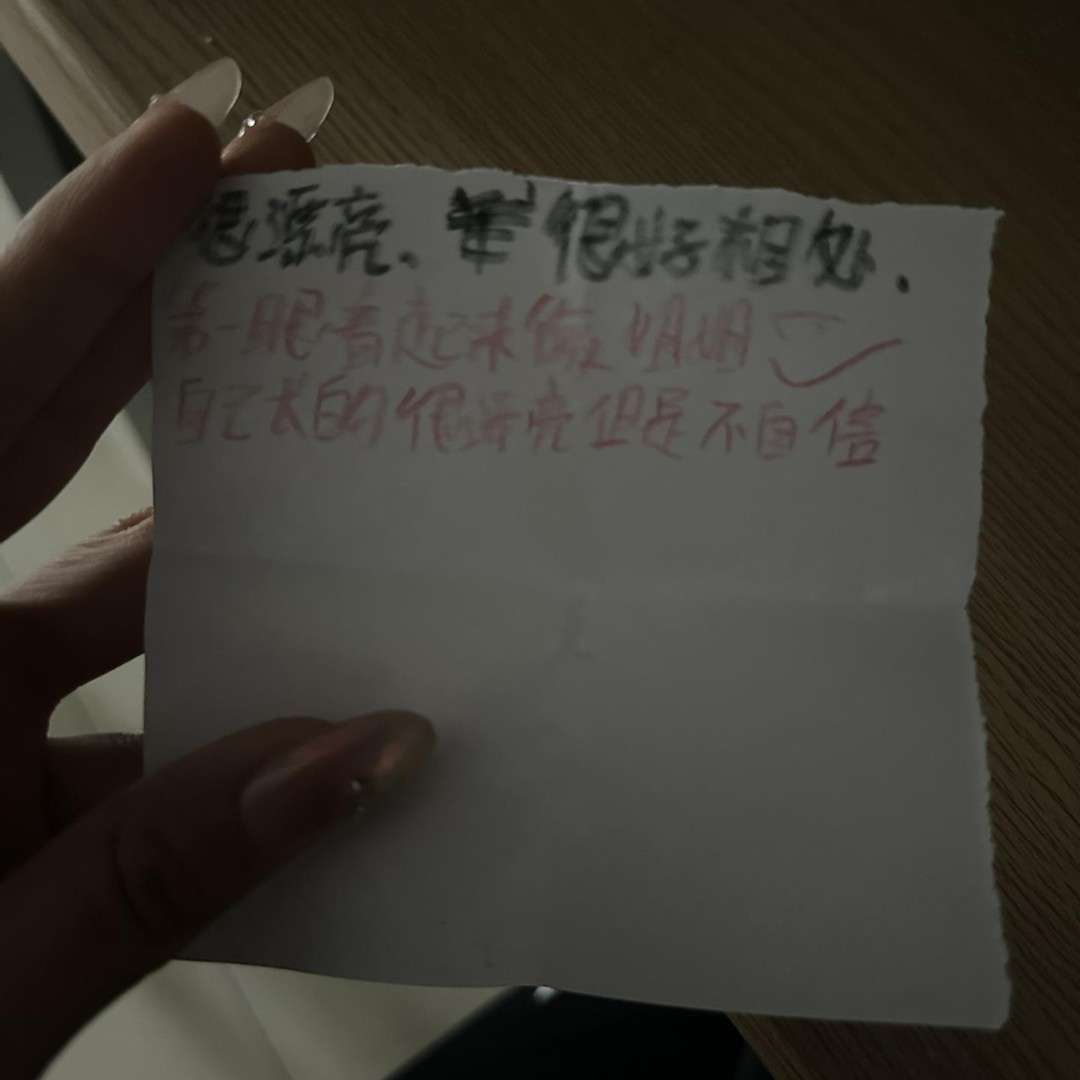 很漂亮、很好相处.
第一眼看起来像姐姐
自己长的很漂亮但是不自信